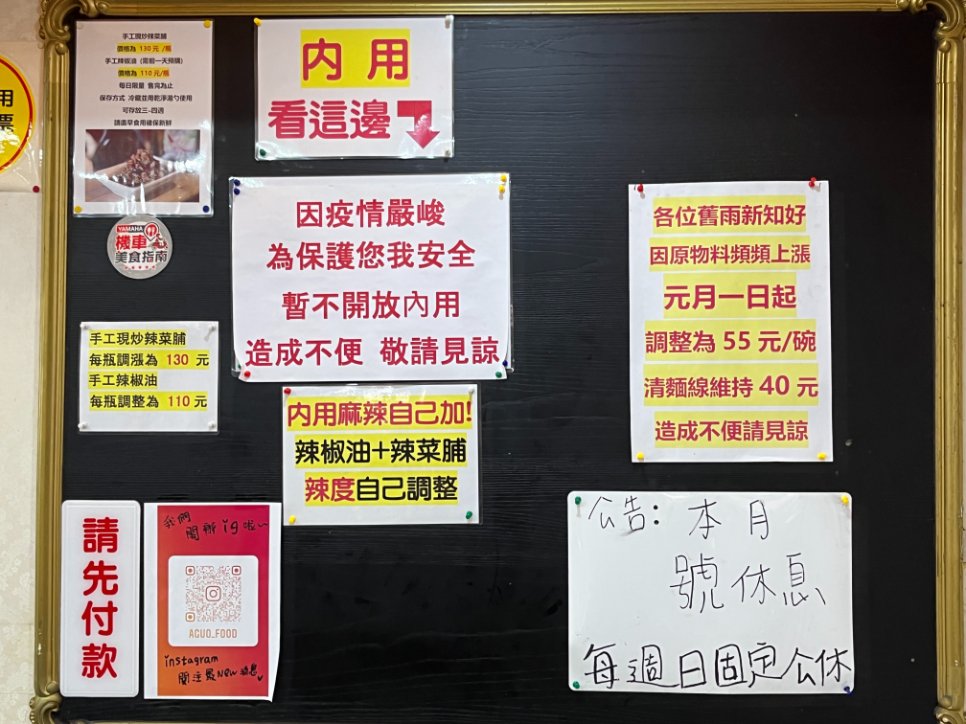 手工現炒辣菜脯
價格為 130 元 /瓶
手工辣椒油 (需前一天預購)
價格為 110 元/瓶
每日限量 售完為止
保存方式 冷藏並用乾淨湯勺使用
可存放三-四週
請盡早食用確保新鮮
內用
看這邊
用
票
YAMAHA
機車
美食指南
因疫情嚴峻
為保護您我安全
暫不開放內用
造成不便 敬請見諒
各位舊雨新知好
因原物料頻頻上漲
元月一日起
調整為 55 元/碗
清麵線維持 40 元
造成不便請見諒
手工現炒辣菜脯
每瓶調漲為 130 元
手工辣椒油
每瓶調整為 110 元
內用麻辣自己加!
辣椒油+辣菜脯
辣度自己調整
請先付款
我們
開辦ig啦~
AGUO_FOOD
instagram
關注最New消息
公告: 本月
號休息
每週日固定公休